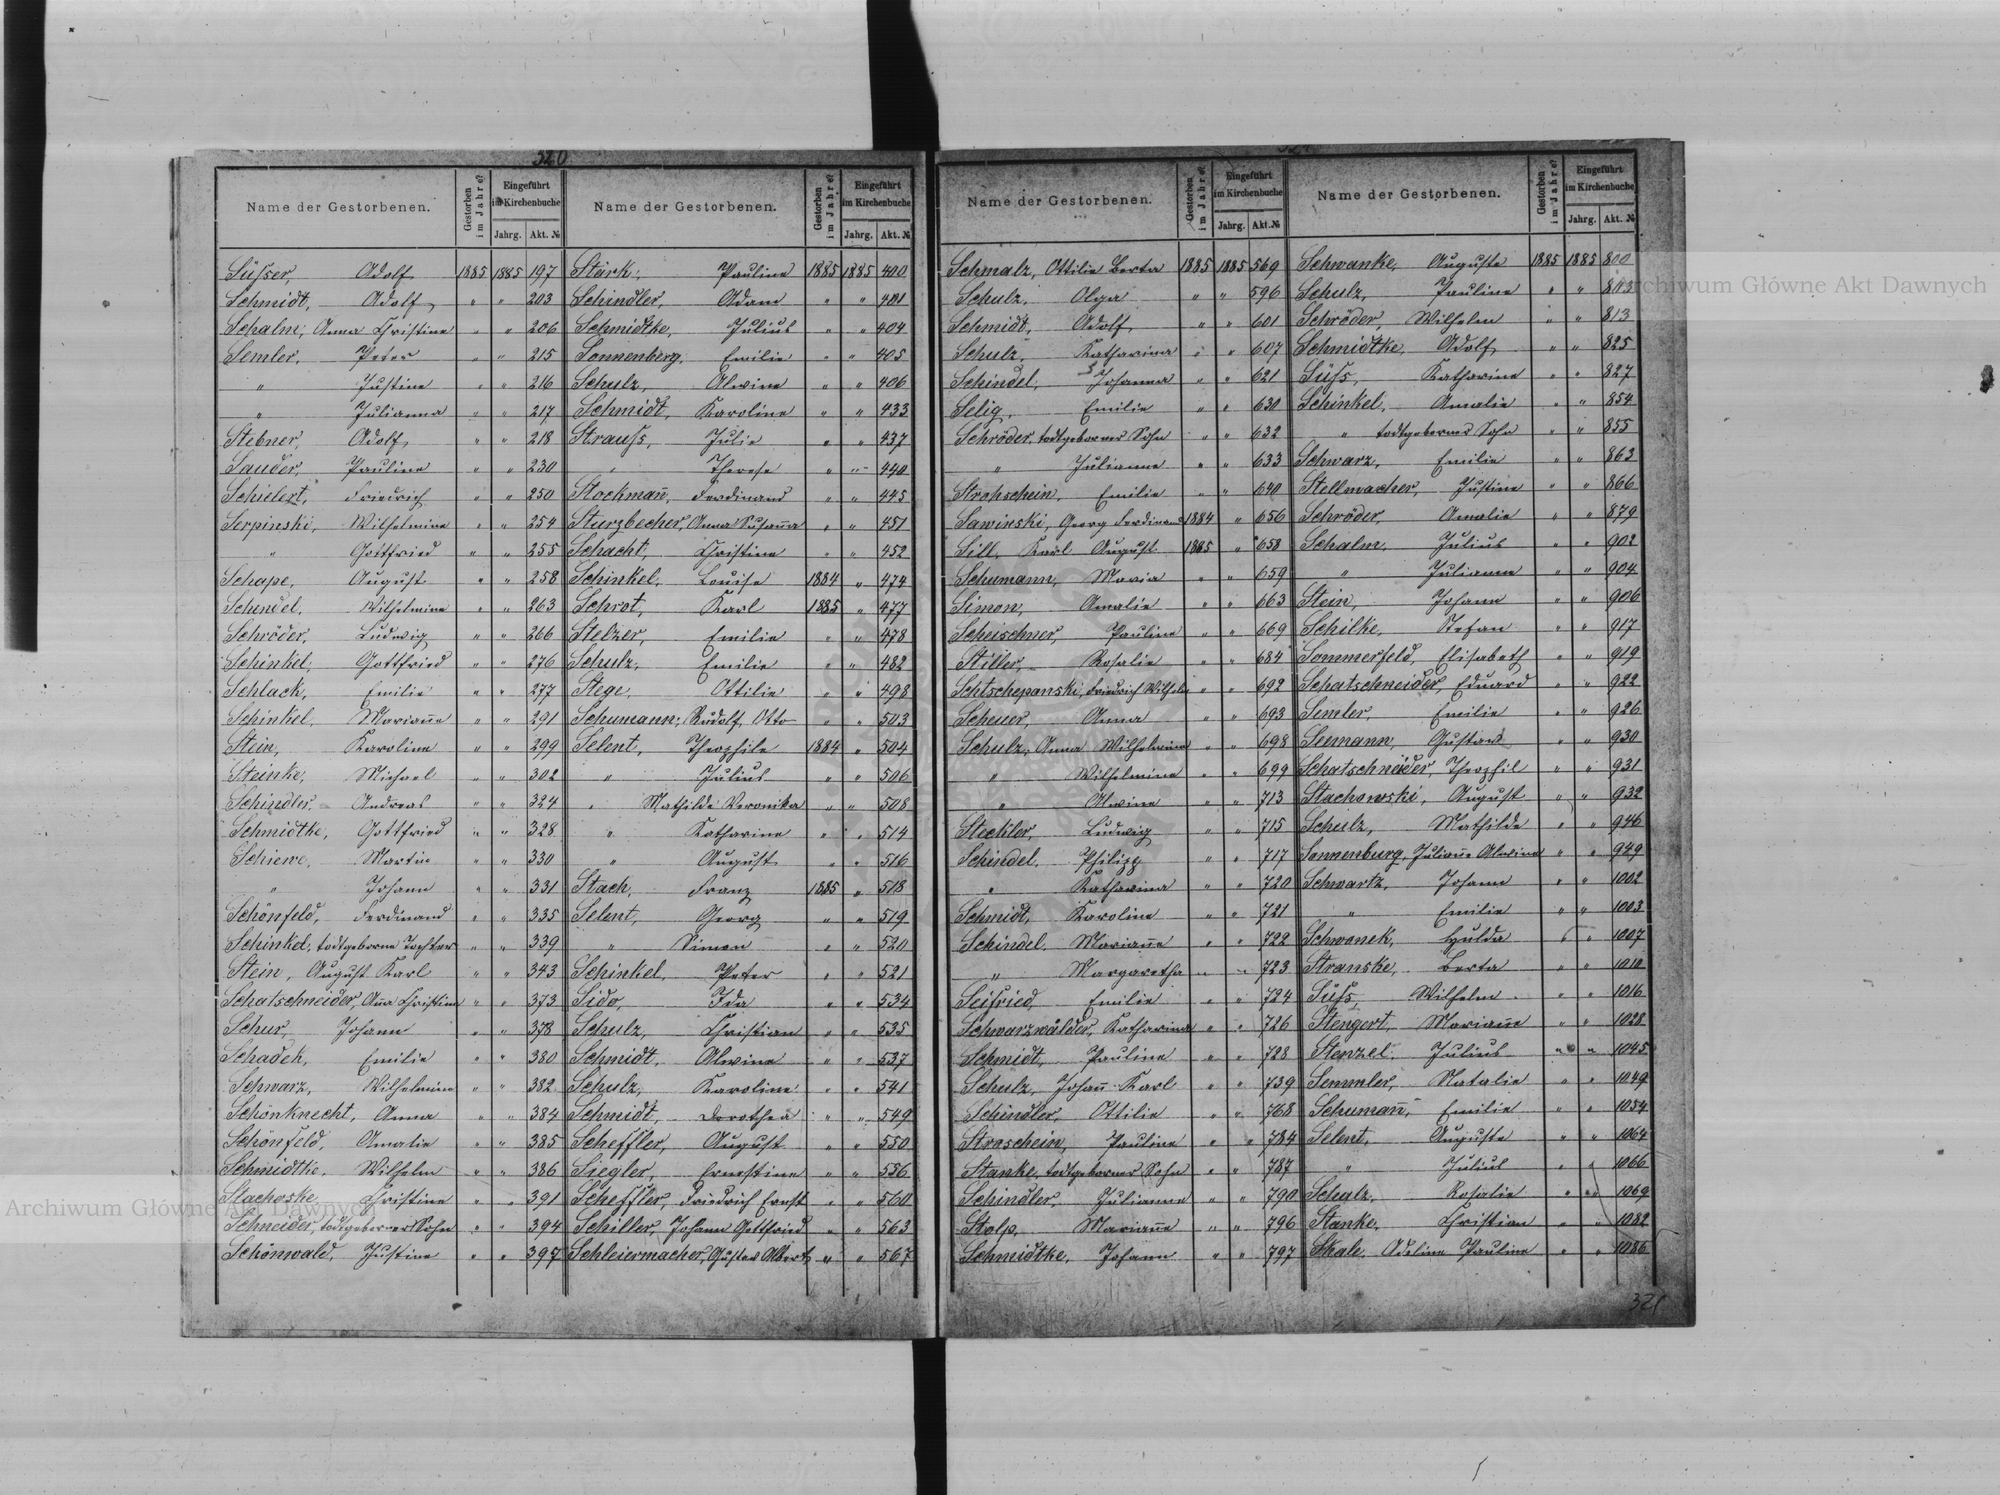 320
Name der Gestorbenen. Gestorben im Jahre? Eingeführt im Kirchenbuche Jahrg. Akt. №
Süßer, Adolf 1885 1885 197
Schmidt, Adolf " " 203
Schalm, Anna Christine " " 206
Semler, Peter " " 215
" Justine " " 216
" Julianna " " 217
Stebner, Adolf " " 218
Sauder, Pauline " " 230
Schielert, Friedrich " " 250
Serpinski, Wilhelmine " " 254
" Gottfried " " 255
Schape, August " " 258
Schindel, Wilhelmine " " 263
Schröder, Ludwig " " 266
Schinkel, Gottfried " " 276
Schlack, Emilie " " 277
Schinkel, Marian̄e " " 291
Stein, Karoline " " 299
Steinke, Michael " " 302
Schindler, Andreas " " 324
Schmidtke, Gottfried " " 328
Schiewe, Martin " " 330
" Johann " " 331
Schönfeld, Ferdinand " " 335
Schinkel, todtgeborne Tochter " " 339
Stein, August Karl " " 343
Schatschneider, An̄a Christine " " 373
Schur Johann " " 378
Schadek, Emilie " " 380
Schwarz, Wilhelmine " " 382
Schönknecht, Anna " " 384
Schönfeld, Amalie " " 385
Schmidtke, Wilhelm " " 386
Stachoske, Christine " " 391
Schneider, todtgeborner Sohn " " 394
Schönwald, Justine " " 397
Name der Gestorbenen. Gestorben im Jahre? Eingeführt im Kirchenbuche Jahrg. Akt. №
Stärk, Pauline 1885 1885 400
Schindler, Adam " " 401
Schmidtke, Julius " " 404
Sonnenberg, Emilie " " 405
Schulz, Alwine " " 406
Schmidt, Karoline " " 433
Strauß, Julie " " 437
" Therese " " 440
Stockman̄, Ferdinand " " 445
Sturzbecher, Anna Susan̄a " " 451
Schacht, Christine " " 452
Schinkel, Louise 1884 " 474
Schrot, Karl 1885 " 477
Stelzer, Emilie " " 478
Schulz, Emilie " " 482
Stege, Ottilie " " 498
Schumann, Rudolf Otto " " 503
Selent, Theophile 1884 " 504
" Julius " " 506
" Mathilde Veronika " " 508
" Katharine " " 514
" August " " 516
Stach, Franz 1885 " 518
Selent, Georg " " 519
" Simon " " 520
Schinkel, Peter " " 521
Sido, Ida " " 534
Schulz, Christian " " 535
Schmidt, Alwine " " 537
Schulz, Karoline " " 541
Schmidt, Dorothea " " 549
Scheffler, August " " 550
Siegler, Ernestine " " 556
Scheffler, Friedrich Ernst " " 560
Schiller, Johann Gottfried " " 563
Schleiermacher, Gustav Albert " " 567
Name der Gestorbenen. Gestorben im Jahre? Eingeführt im Kirchenbuche Jahrg. Akt. №
Schmalz, Ottilie Berta 1885 1885 569
Schulz, Olga " " 596
Schmidt, Adolf " " 601
Schulz, Katharina " " 607
Schindel, Johanna " " 621
Selig, Emilie " " 630
Schröder, todtgeborner Sohn " " 632
" Julianne " " 633
Strohschein, Emilie " " 640
Sawinski, Georg Ferdinand 1884 " 656
Sill, Karl August 1885 " 658
Schumann, Maria " " 659
Simon, Amalie " " 663
Scheischner, Pauline " " 669
Stiller, Rosalie " " 684
Schtschepanski, Friedrich Wilhelm " " 692
Scheuer, Anna " " 693
Schulz, Anna Wilhelmine " " 698
" Wilhelmine " " 699
" Alwine " " 713
Steckler, Ludwig " " 715
Schindel, Philipp " " 717
" Katharina " " 720
Schmidt, Karoline " " 721
Schindel, Marian̄e " " 722
" Margaretha " " 723
Seifried, Emilie " " 724
Schwarzwälder, Katharina " " 726
Schmidt, Pauline " " 728
Schulz, Johan̄ Karl " " 739
Schindler, Ottilie " " 768
Straschein, Pauline " " 784
Stanke, todtgeborner Sohn " " 787
Schindler, Julianne " " 790
Stolp, Marian̄e " " 796
Schmidtke, Johann " " 797
Name der Gestorbenen. Gestorben im Jahre? Eingeführt im Kirchenbuche Jahrg. Akt. №
Schwanke, Auguste 1885 1885 800
Schulz, Pauline " " 803
Schröder, Wilhelm " " 813
Schmidtke, Adolf " " 825
Süß, Katharine " " 827
Schinkel, Amalie " " 854
" todtgeborner Sohn " " 855
Schwarz, Emilie " " 863
Stellmacher, Justine " " 866
Schröder, Amalie " " 879
Schalm, Julius " " 902
" Julianne " " 904
Stein, Johann " " 906
Schilke, Stefan " " 917
Sommerfeld, Elisabeth " " 919
Schatschneider, Eduard " " 922
Semler, Emilie " " 926
Seemann, Gustav " " 930
Schatschneider, Theophil " " 931
Stachowski, August " " 932
Schulz, Mathilde " " 946
Sannenburg, Julian̄e Alwine " " 949
Schwartz, Johann " " 1002
" Emilie " " 1003
Schwonek, Hulda " " 1007
Stranske, Berta " " 1010
Süß, Wilhelm " " 1016
Stengert, Marian̄e " " 1028
Stenzel, Julius " " 1045
Semmler, Natalie " " 1049
Schuman̄, Emilie " " 1054
Selent, Auguste " " 1064
" Julius " " 1066
Schulz, Rosalie " " 1069
Stanke, Christian " " 1082
Skale, Adeline Pauline " " 1086
321
Archiwum Główne Akt Dawnych
Archiwum Główne Akt Dawnych